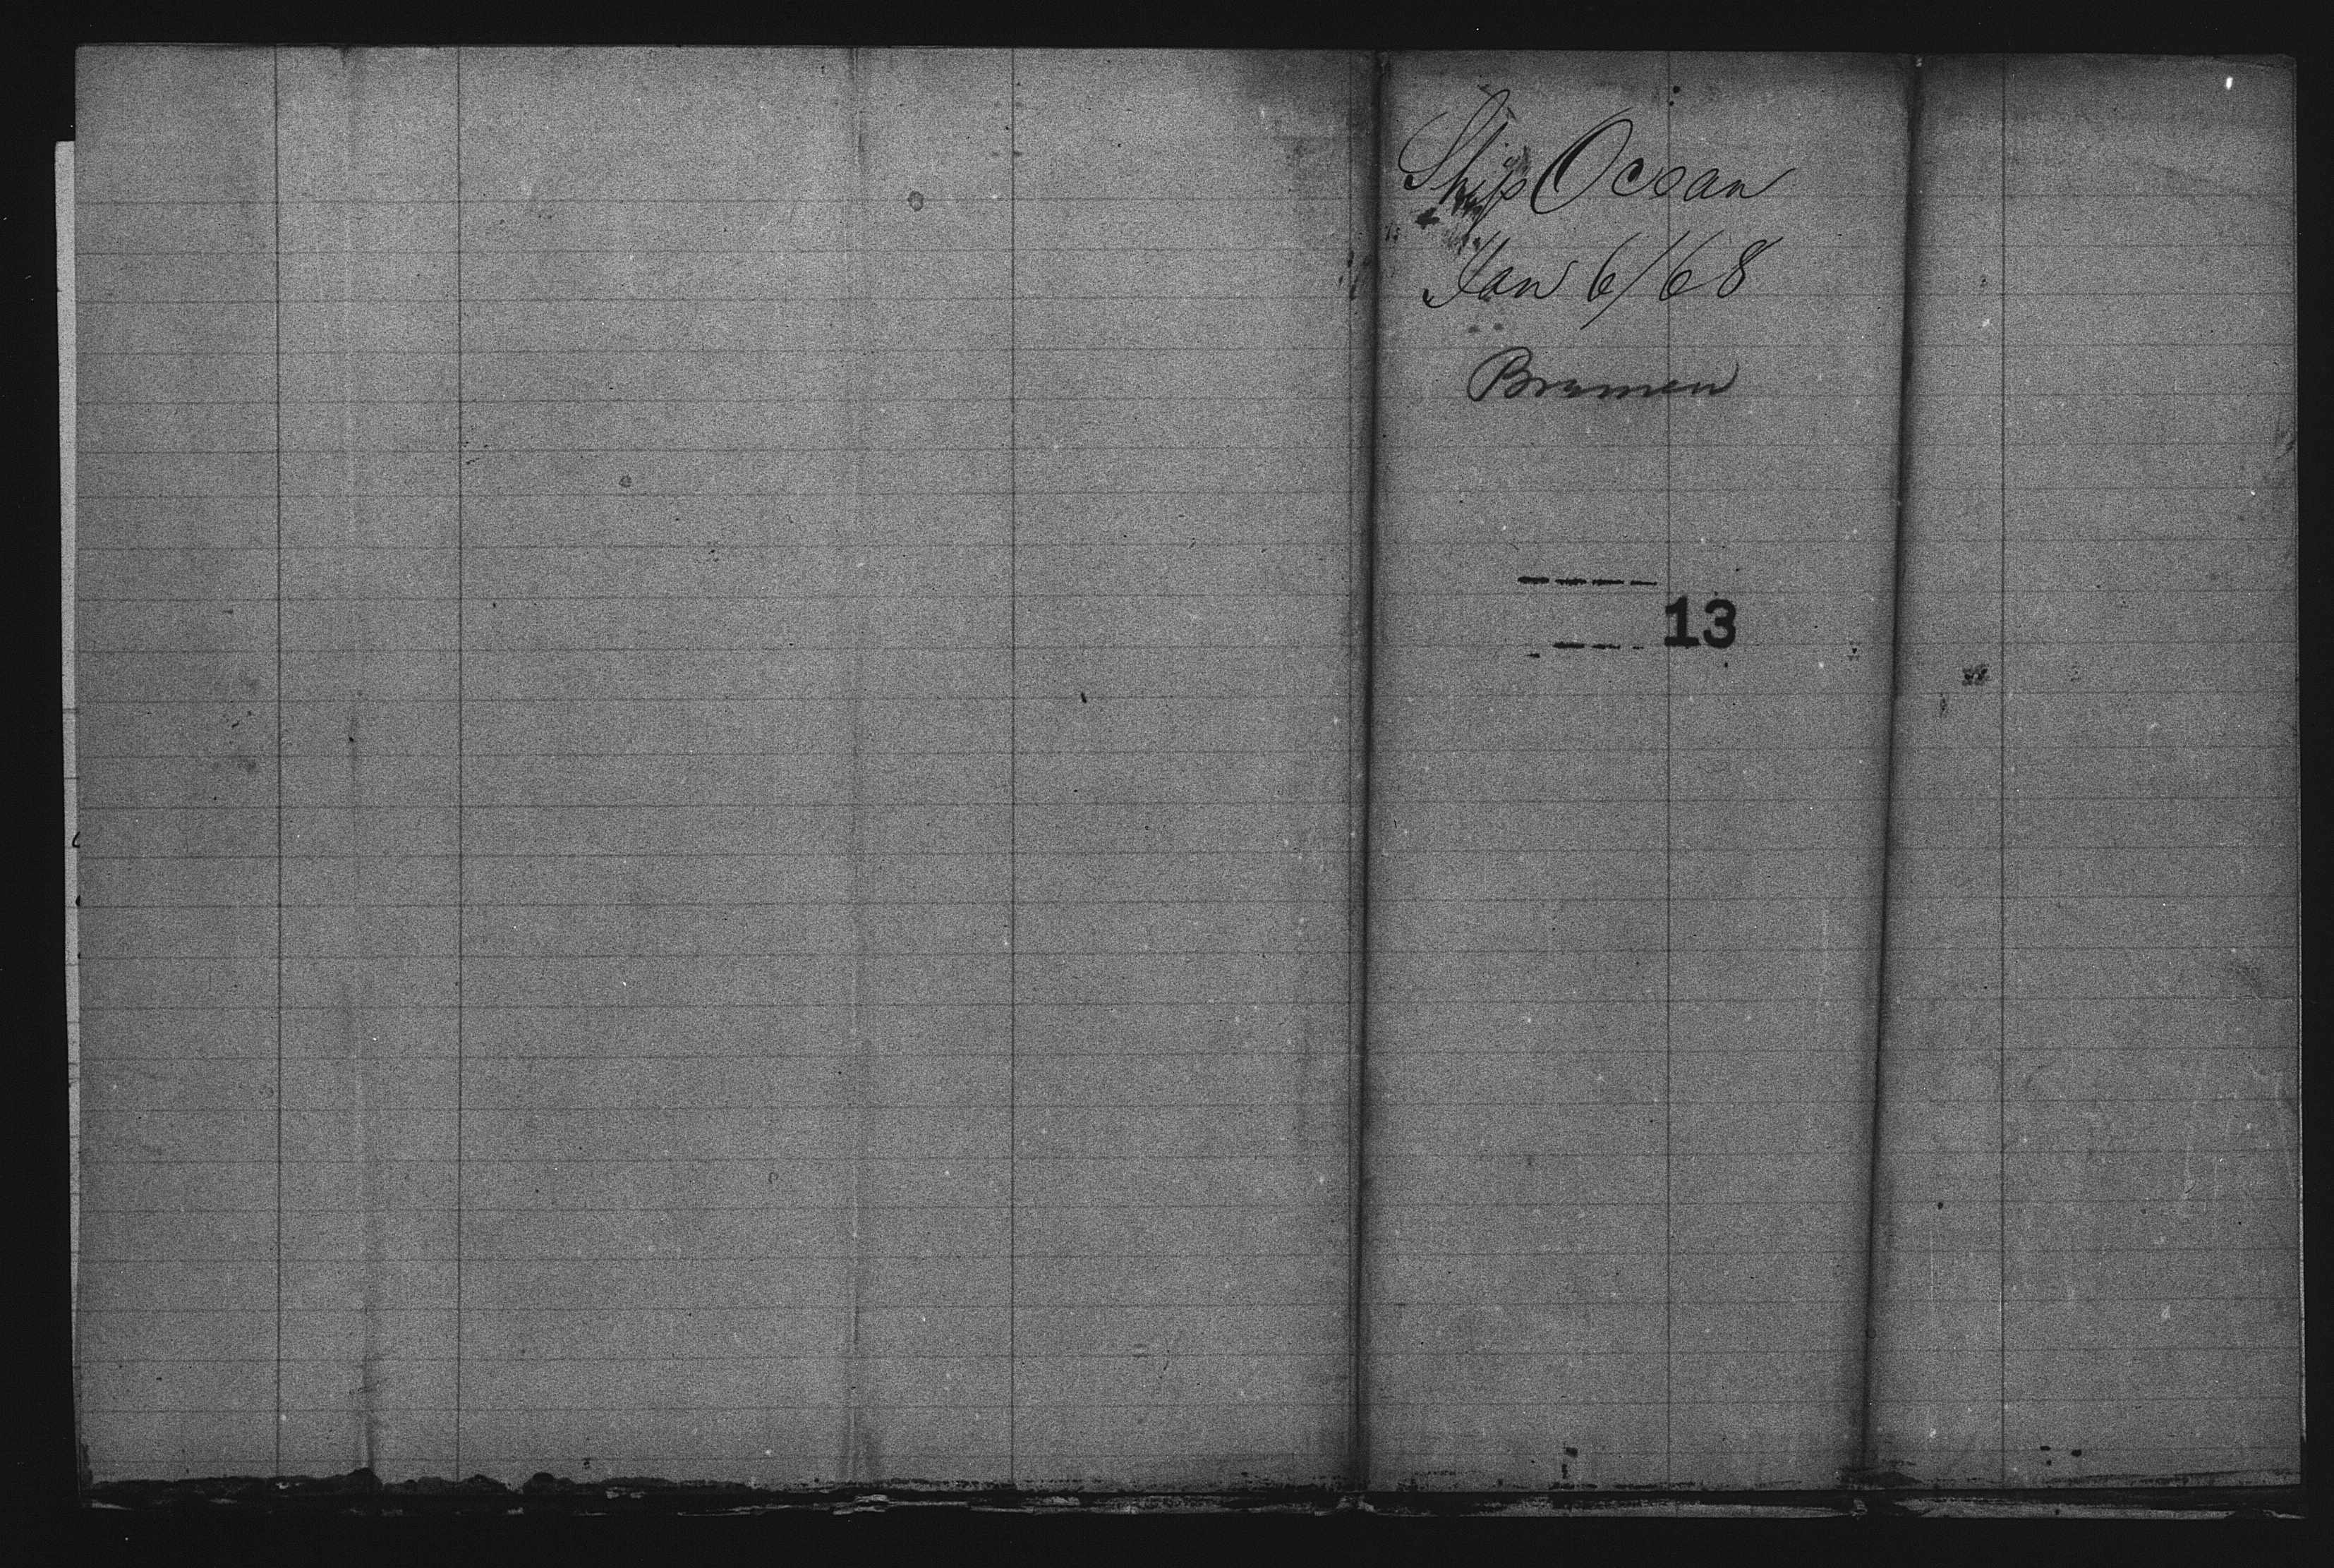 Ship Ocean
Jan 6/68
Bremen
13